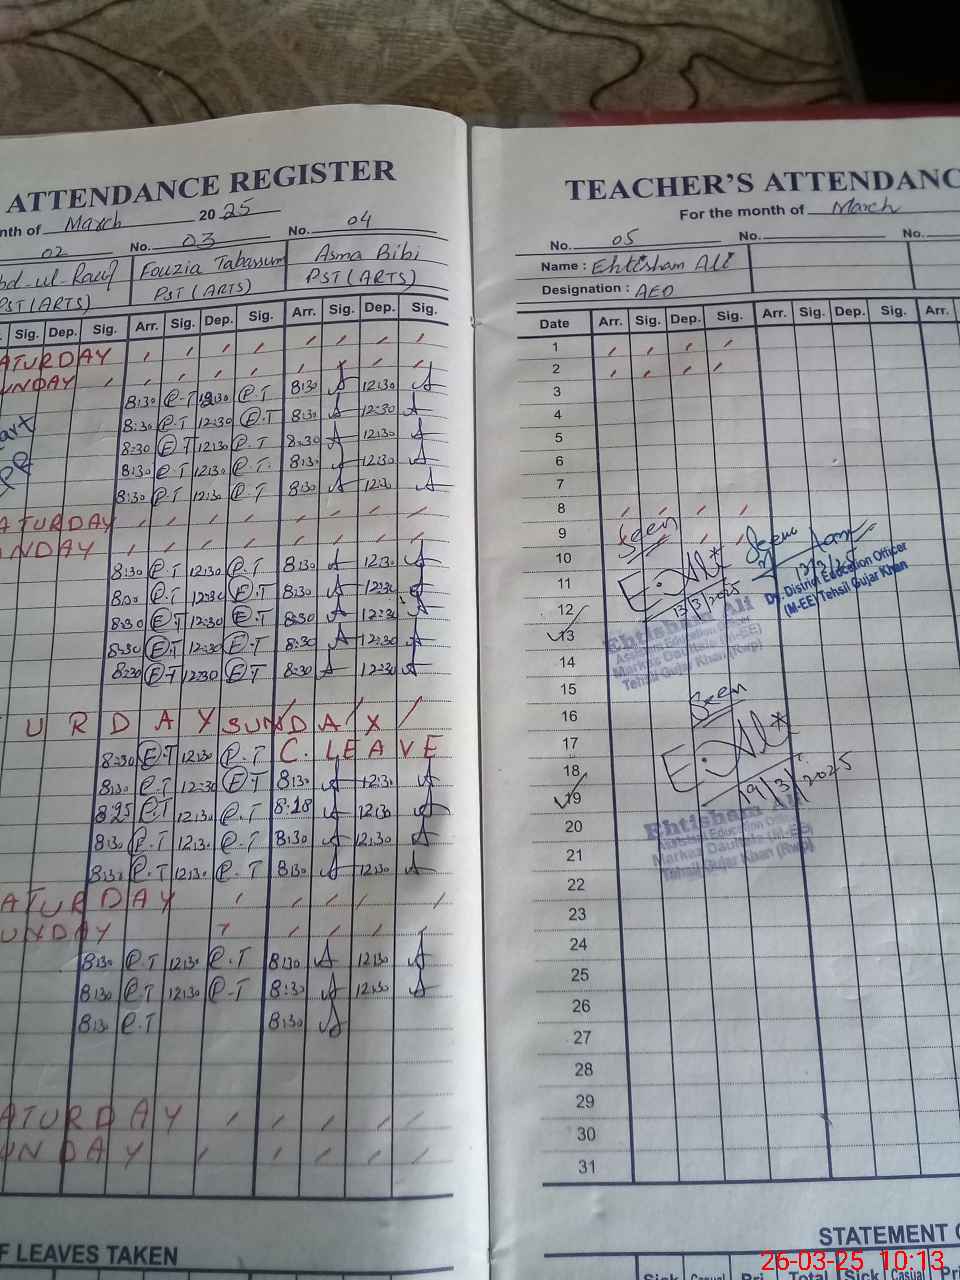 ATTENDANCE REGISTER
nth of March 2025
02 No. 03 No. 04
bd-ul-Rauf Fouzia Tabassum Asma Bibi
PST (ARTS) PST (ARTS) PST (ARTS)
Sig. Dep. Sig. Arr. Sig. Dep. Sig. Arr. Sig. Dep. Sig.
ATURDAY
UNDAY
8:30 E.T 12:30 E.T 8:30 A 12:30 A
8:30 E.T 12:30 E.T 8:30 A 12:30 A
8:30 E.T 12:30 E.T 8:30 A 12:30 A
8:30 E.T 12:30 E.T 8:30 A 12:30 A
8:30 E.T 12:30 E.T 8:30 A 12:30 A
ATURDAY
UNDAY
8:30 E.T 12:30 E.T 8:30 A 12:30 A
8:30 E.T 12:30 E.T 8:30 A 12:30 A
8:30 E.T 12:30 E.T 8:30 A 12:30 A
8:30 E.T 12:30 E.T 8:30 A 12:30 A
8:30 E.T 12:30 E.T 8:30 A 12:30 A
TURDAY SUNDAY
8:30 E.T 12:30 E.T C. LEAVE
8:30 E.T 12:30 E.T 8:30 A 12:30 A
8:25 E.T 12:30 E.T 8:18 A 12:30 A
8:30 E.T 12:30 E.T 8:30 A 12:30 A
8:30 E.T 12:30 E.T 8:30 A 12:30 A
ATURDAY
UNDAY
8:30 E.T 12:30 E.T 8:30 A 12:30 A
8:30 E.T 12:30 E.T 8:30 A 12:30 A
8:30 E.T 8:30 A
ATURDAY
UNDAY
F LEAVES TAKEN
TEACHER'S ATTENDANC
For the month of March
No. 05 No. No.
Name : Ehtisham Ali
Designation : AEO
Date Arr. Sig. Dep. Sig. Arr. Sig. Dep. Sig. Arr.
1
2
3
4
5
6
7
8
9
10
11
12
13
14
15
16
17
18
19
20
21
22
23
24
25
26
27
28
29
30
31
Seen
E.Ali
13/3/2025
Ehtisham Ali
Assistant Education Officer
Markaz Daultala (M-EE)
Tehsil Gujar Khan (Rwp)
Seen
12/3/25
Dy. District Education Officer
(M-EE) Tehsil Gujar Khan
Seen
E.Ali
19/3/2025
Ehtisham Ali
Assistant Education Officer
Markaz Daultala (M-EE)
Tehsil Gujar Khan (Rwp)
STATEMENT O
Sick Casual Pri Total Sick Casual Pri
26-03-25 10:13